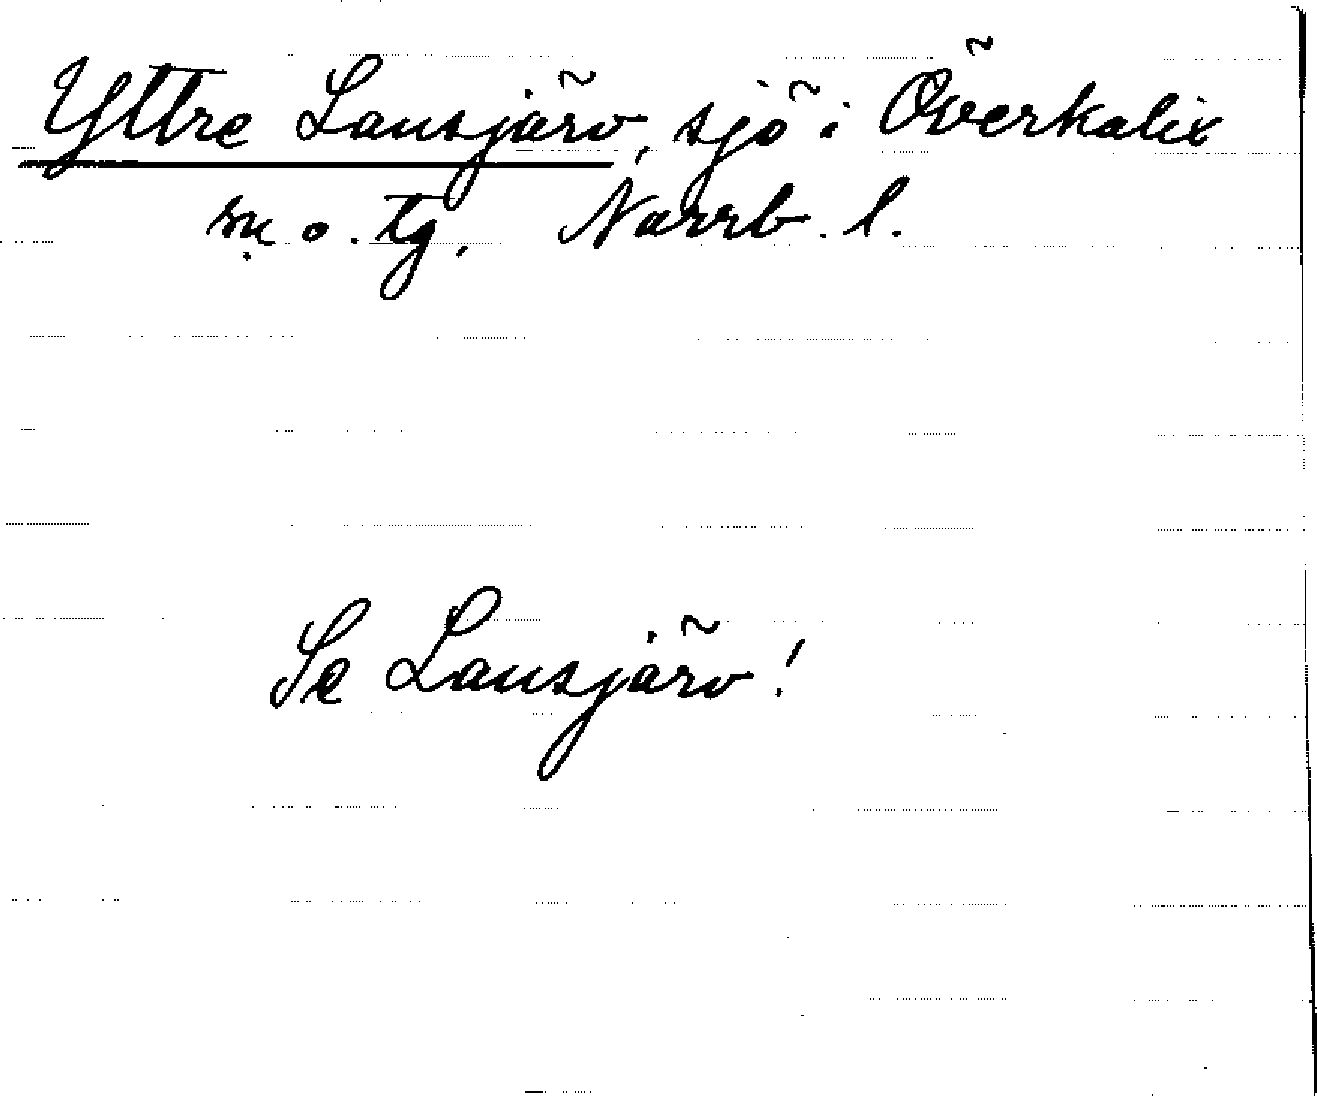 Yttre Lansjärv, sjö i Överkalix
sn o. tg, Norrb. l.
Se Lansjärv!